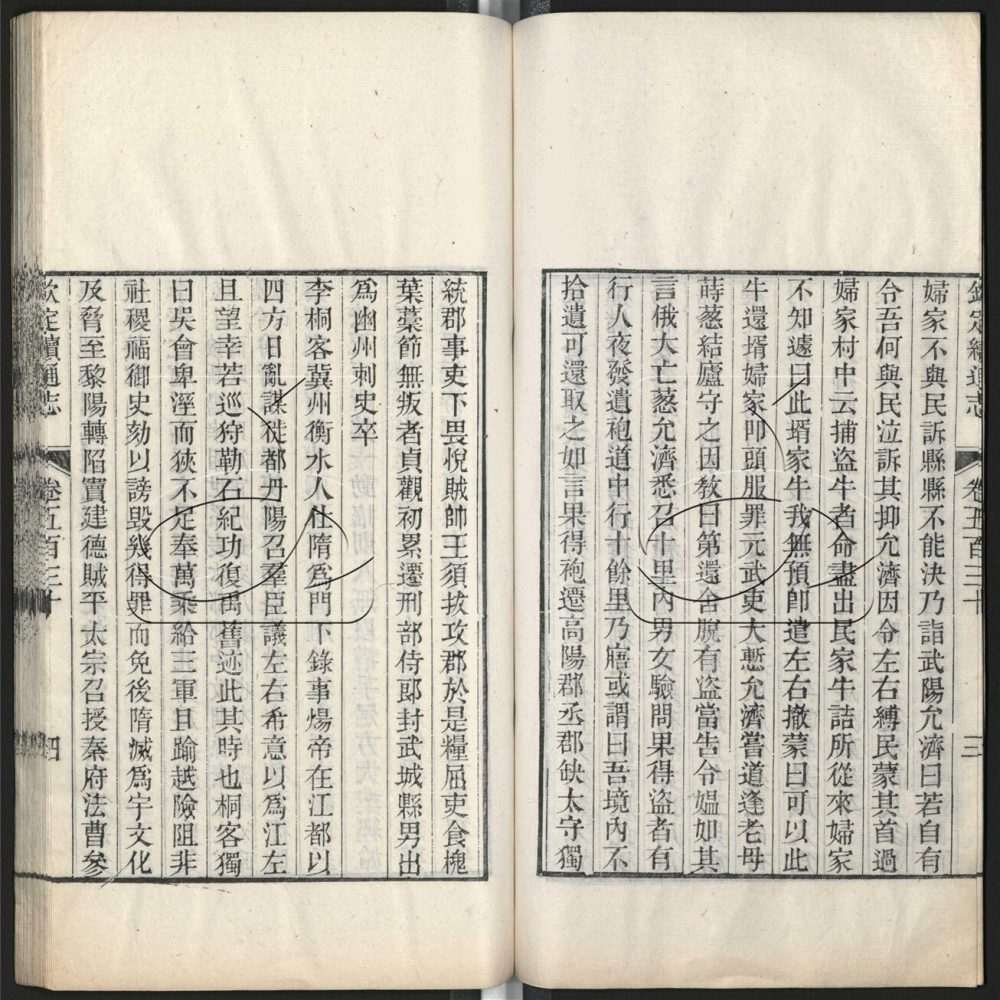 欽定續通志 卷五百三十 三
婦家不與民訴縣縣不能決乃詣武陽允濟曰若自有
令吾何與民泣訴其抑允濟因令左右縛民蒙其首過
婦家村中云捕盜牛者命盡出民家牛詰所從來婦家
不知遽曰此壻家牛我無預卽遣左右撤蒙曰可以此
牛還壻婦家叩頭服罪元武吏大慙允濟嘗道逢老母
蒔葱結廬守之因敎曰第還舍脫有盜當告令媼如其
言俄大亡葱允濟悉召十里內男女驗問果得盜者有
行人夜發遺袍道中行十餘里乃寤或謂曰吾境內不
拾遺可還取之如言果得袍遷高陽郡丞郡缺太守獨
統郡事吏下畏悅賊帥王須拔攻郡於是糧屈吏食槐
葉藁節無叛者貞觀初累遷刑部侍郎封武城縣男出
爲幽州刺史卒
李桐客冀州衡水人仕隋爲門下錄事煬帝在江都以
四方日亂謀徙都丹陽召羣臣議左右希意以爲江左
且望幸若巡狩勒石紀功復禹舊迹此其時也桐客獨
曰吳會卑溼而狹不足奉萬乘給三軍且踰越險阻非
社稷福御史劾以謗毀幾得罪而免後隋滅爲宇文化
及脅至黎陽轉陷竇建德賊平太宗召授秦府法曹參
欽定續通志 卷五百三十 四